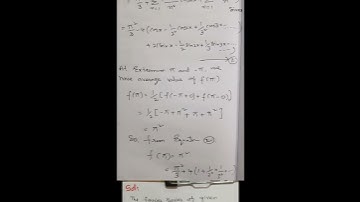 = π²/3 - 4(cosx - 1/2² cos2x + 1/3² cos3x ...
+ 2(sinx - 1/2 sin2x + 1/3 sin3x - ...
②
At Extremum π and -π, we
have average value of f(π)
f(π) = 1/2 [f(-π+0) + f(π-0)]
= 1/2 [-π + π² + π + π²]
= π²
So from Equation ②
f(π) = π²
= π²/3 + 4(1 + 1/2² + 1/3² + ...)
Soln
The fourier series of given